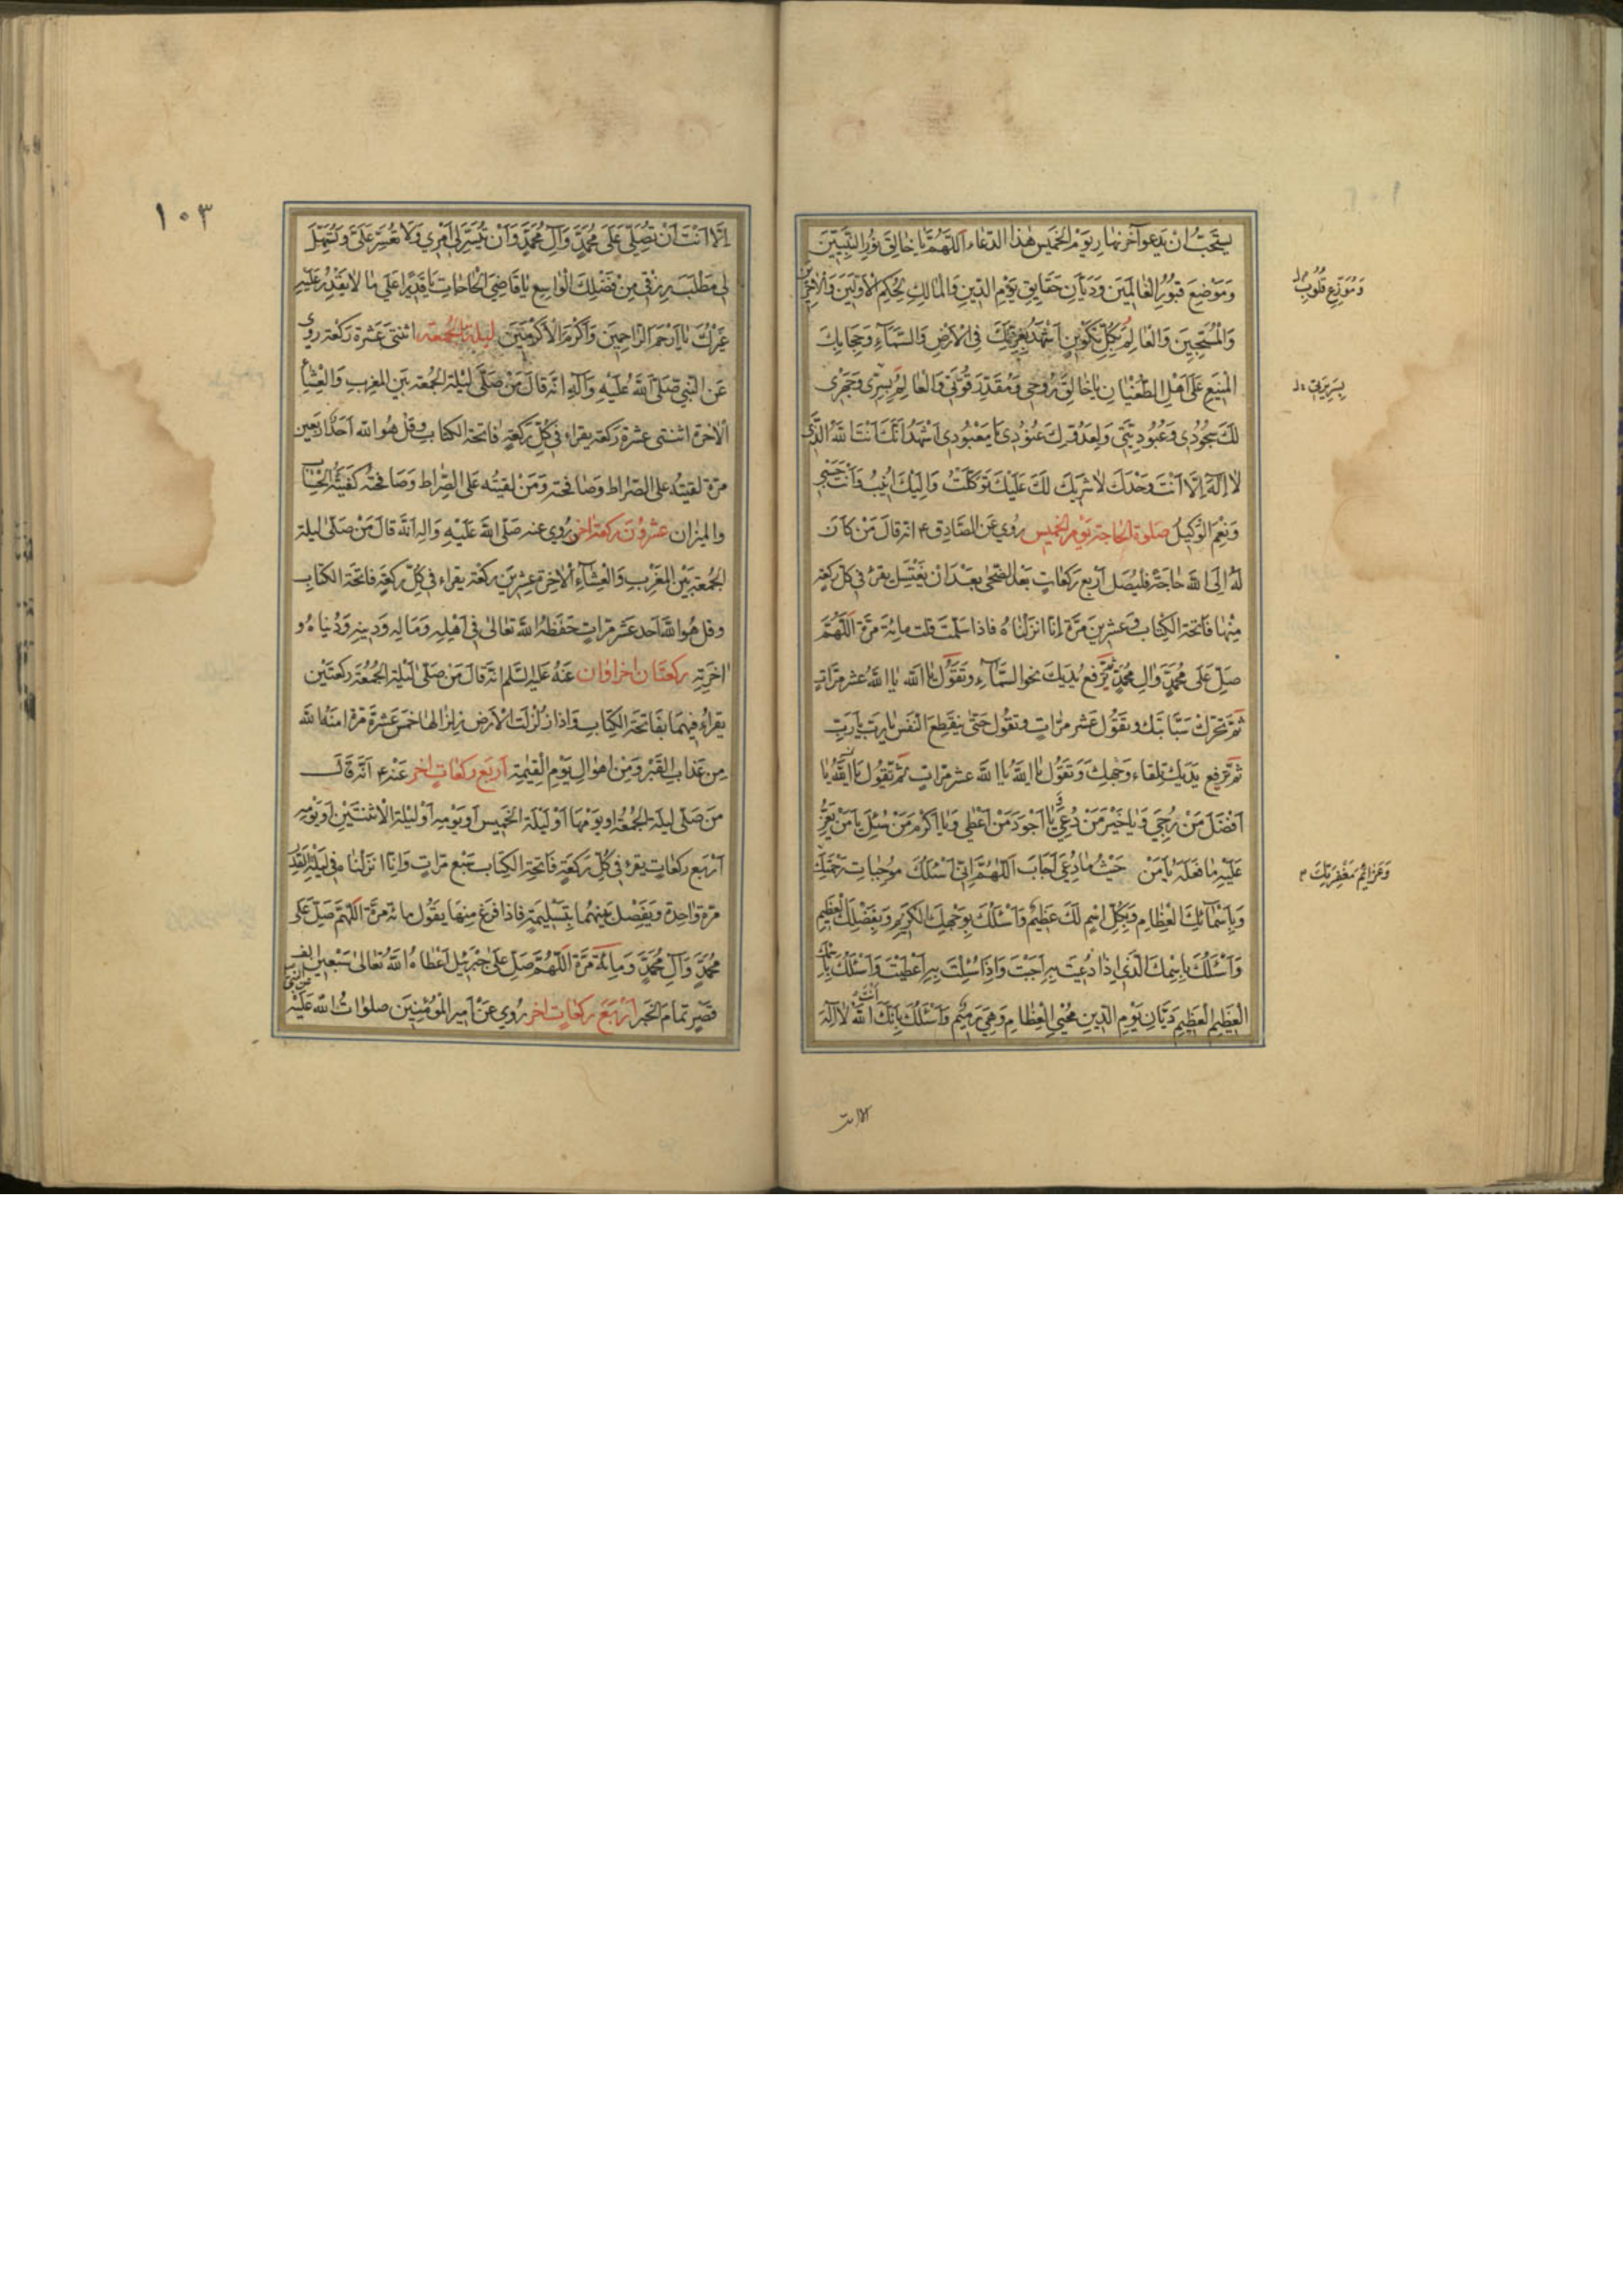 يستحبّ ان يدعو آخر نهار يوم الخميس هذا الدّعاء اللّهمّ يا خالق نور النّبيّين
وموزّع قلوب
وموضع قبور العالمين وديّان حقايق يوم الدّين والمالك لحكم الاوّلين والاخرين
والمسبّحين والعالم بكلّ تكوين اشهد بعزّتك في الارض والسّماء وحجابك
المنيع على اهل الطّغيان يا خالق روحي ومقدّر قوتي والعالم بسرّي وجهري
لك سجودي وعبوديّتي ولعدوّك عنودي يا معبودي اشهد انّك انت الله الّذي
لا اله الّا انت وحدك لا شريك لك عليك توكّلت واليك انيب وانت حسبي
ونعم الوكيل صلوة الحاجة يوم الخميس روي عن الصّادق ع انّه قال من كان
له الى الله حاجة فليصل اربع ركعات بعد الضّحى بعد ان يغتسل يقرء في كلّ ركعة
منها فاتحة الكتاب وعشرين مرّة انّا انزلناه فاذا سلّمت قلت مائة مرّة اللّهمّ
صلّ على محمّد وال محمّد ثمّ ترفع يديك نحو السّماء وتقول يا الله يا الله عشر مرّات
ثمّ تحرّك سبّابتك وتقول عشر مرّات وتقول حتّى ينقطع النّفس يا ربّ يا ربّ
ثمّ ترفع يديك تلقاء وجهك وتقول يا الله يا الله عشر مرّات ثمّ تقول يا الله يا
افضل من رجي ويا خير من دعي ويا اجود من اعطى ويا اكرم من سئل يا من لا يعزّ
عليه ما فعله يا من حيث ما دعي اجاب اللّهمّ انّي اسئلك موجبات رحمتك
وعزائم مغفرتك
وباسمائك العظام وبكلّ اسم لك عظيم واسئلك بوجهك الكريم وبفضلك العظيم
واسئلك باسمك الّذي اذا دعيت به اجبت واذا سئلت به اعطيت واسئلك باسمك
العظيم العظيم ديّان يوم الدّين محيي العظام وهي رميم واسئلك بانّك انت الله لا اله
الا انت
١٠٣
الّا انت ان تصلّي على محمّد وآل محمّد وان تيسّر لي امري ولا تعسّر عليّ وتسهّل
لي مطلب رزقي من فضلك الواسع يا قاضي الحاجات يا قديرا على ما لا يقدر عليه
غيرك يا ارحم الرّاحمين واكرم الاكرمين ليلة الجمعة اثنتي عشرة ركعة روي
عن النّبي صلّى الله عليه وآله انّه قال من صلّى ليلة الجمعة بين المغرب والعشاء
الاخرة اثنتي عشرة ركعة يقراء في كلّ ركعة فاتحة الكتاب وقل هو الله احد اربعين
مرّة لقيته على الصّراط وصافحته ومن لقيته على الصّراط وصافحته كفيته الحساب
والميزان عشرون ركعة اخر روي عنه صلّى الله عليه واله انّه قال من صلّى ليلة
الجمعة بين المغرب والعشاء الاخرة عشرين ركعة يقراء في كلّ ركعة فاتحة الكتاب
وقل هو الله احد عشر مرّات حفظه الله تعالى في اهله وماله ودينه ودنياه و
اخرته ركعتان اخراوان عنه عليه السّلم انّه قال من صلّى ليلة الجمعة ركعتين
يقراء فيهما بفاتحة الكتاب واذا زلزلت الارض زلزالها خمس عشرة مرّة امنه الله
من عذاب القبر ومن اهوال يوم القيمة اربع ركعات اخر عنه ع انّه قال
من صلّى ليلة الجمعة او يومها او ليلة الخميس او يومه او ليلة الاثنين او يومه
اربع ركعات يقرء في كلّ ركعة فاتحة الكتاب سبع مرّات وانّا انزلناه في ليلة القدر
مرّة واحدة ويفصل بينهما بتسليمة فاذا فرغ منها يقول مائة مرّة اللّهمّ صلّ على
محمّد وآل محمّد ومائة مرّة اللّهمّ صلّ على جبرئيل اعطاه الله تعالى سبعين الف
قصر تمام الخبر اربع ركعات اخر روي عن امير المؤمنين صلوات الله عليه